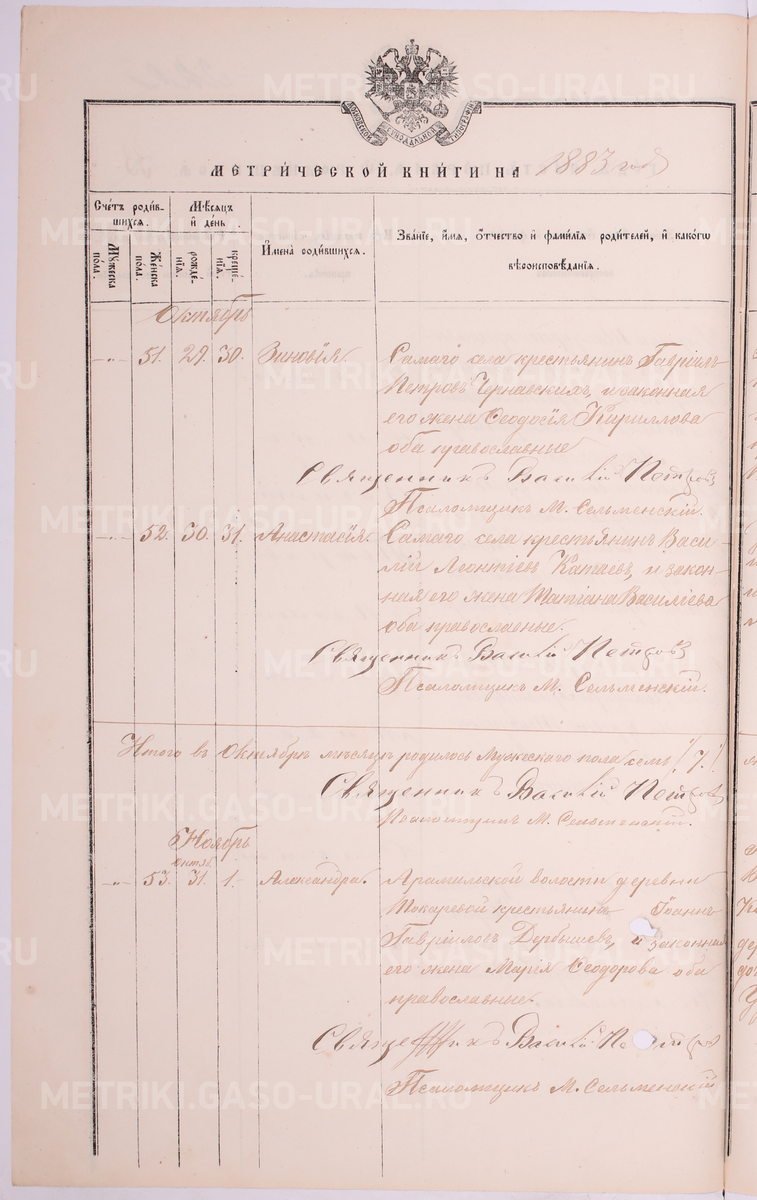 МОСКОВСКОЙ СѴНОДАЛЬНОЙ ТИПОГРАФІИ
МЕТРИ́ЧЕСКОЙ КНИ́ГИ НА 1883 годъ
Сче́тъ роди́в-
шихсѧ.
Мѣ́сѧцъ
и҆ де́нь.
Мꙋ́жеска
по́ла.
Же́нска
по́ла.
рожде́-
нїѧ.
креще́-
нїѧ.
И҆мена̀ роди́вшихсѧ.
Зва́нїе, и҆́мѧ, ѻ҆́тчество и҆ фами́лїѧ роди́телей, и҆ како́гѡ
вѣроисповѣ́данїѧ.
Октябрь
—„— 51. 29. 30. Зиновія. Самаго села крестьянинъ Гавріилъ
Петровъ Чернавскихъ, и законная
его жена Ѳеодосія Кириллова
оба православные
Священникъ Василій Петровъ
Псаломщикъ М. Сельменскій.
—„— 52. 30. 31. Анастасія. Самаго села крестьянинъ Васи-
лій Леонтіевъ Катаевъ, и закон-
ная его жена Татіана Василіева
оба православные.
Священникъ Василій Петровъ
Псаломщикъ М. Сельменскій.
Итого въ Октябрѣ мѣсяцѣ родилось Мужескаго пола семь (7.)
Священникъ Василій Петровъ
Псаломщикъ М. Сельменскій.
Ноябрь
октяб.
—„— 53. 31. 1. Александра. Арамильской волости деревни
Токаревой крестьянинъ Іоаннъ
Гавріиловъ Дербышевъ, и законная
его жена Марія Ѳеодорова оба
православные.
Священникъ Василій Петровъ
Псаломщикъ М. Сельменскій
METRIKI.GASO-URAL.RU